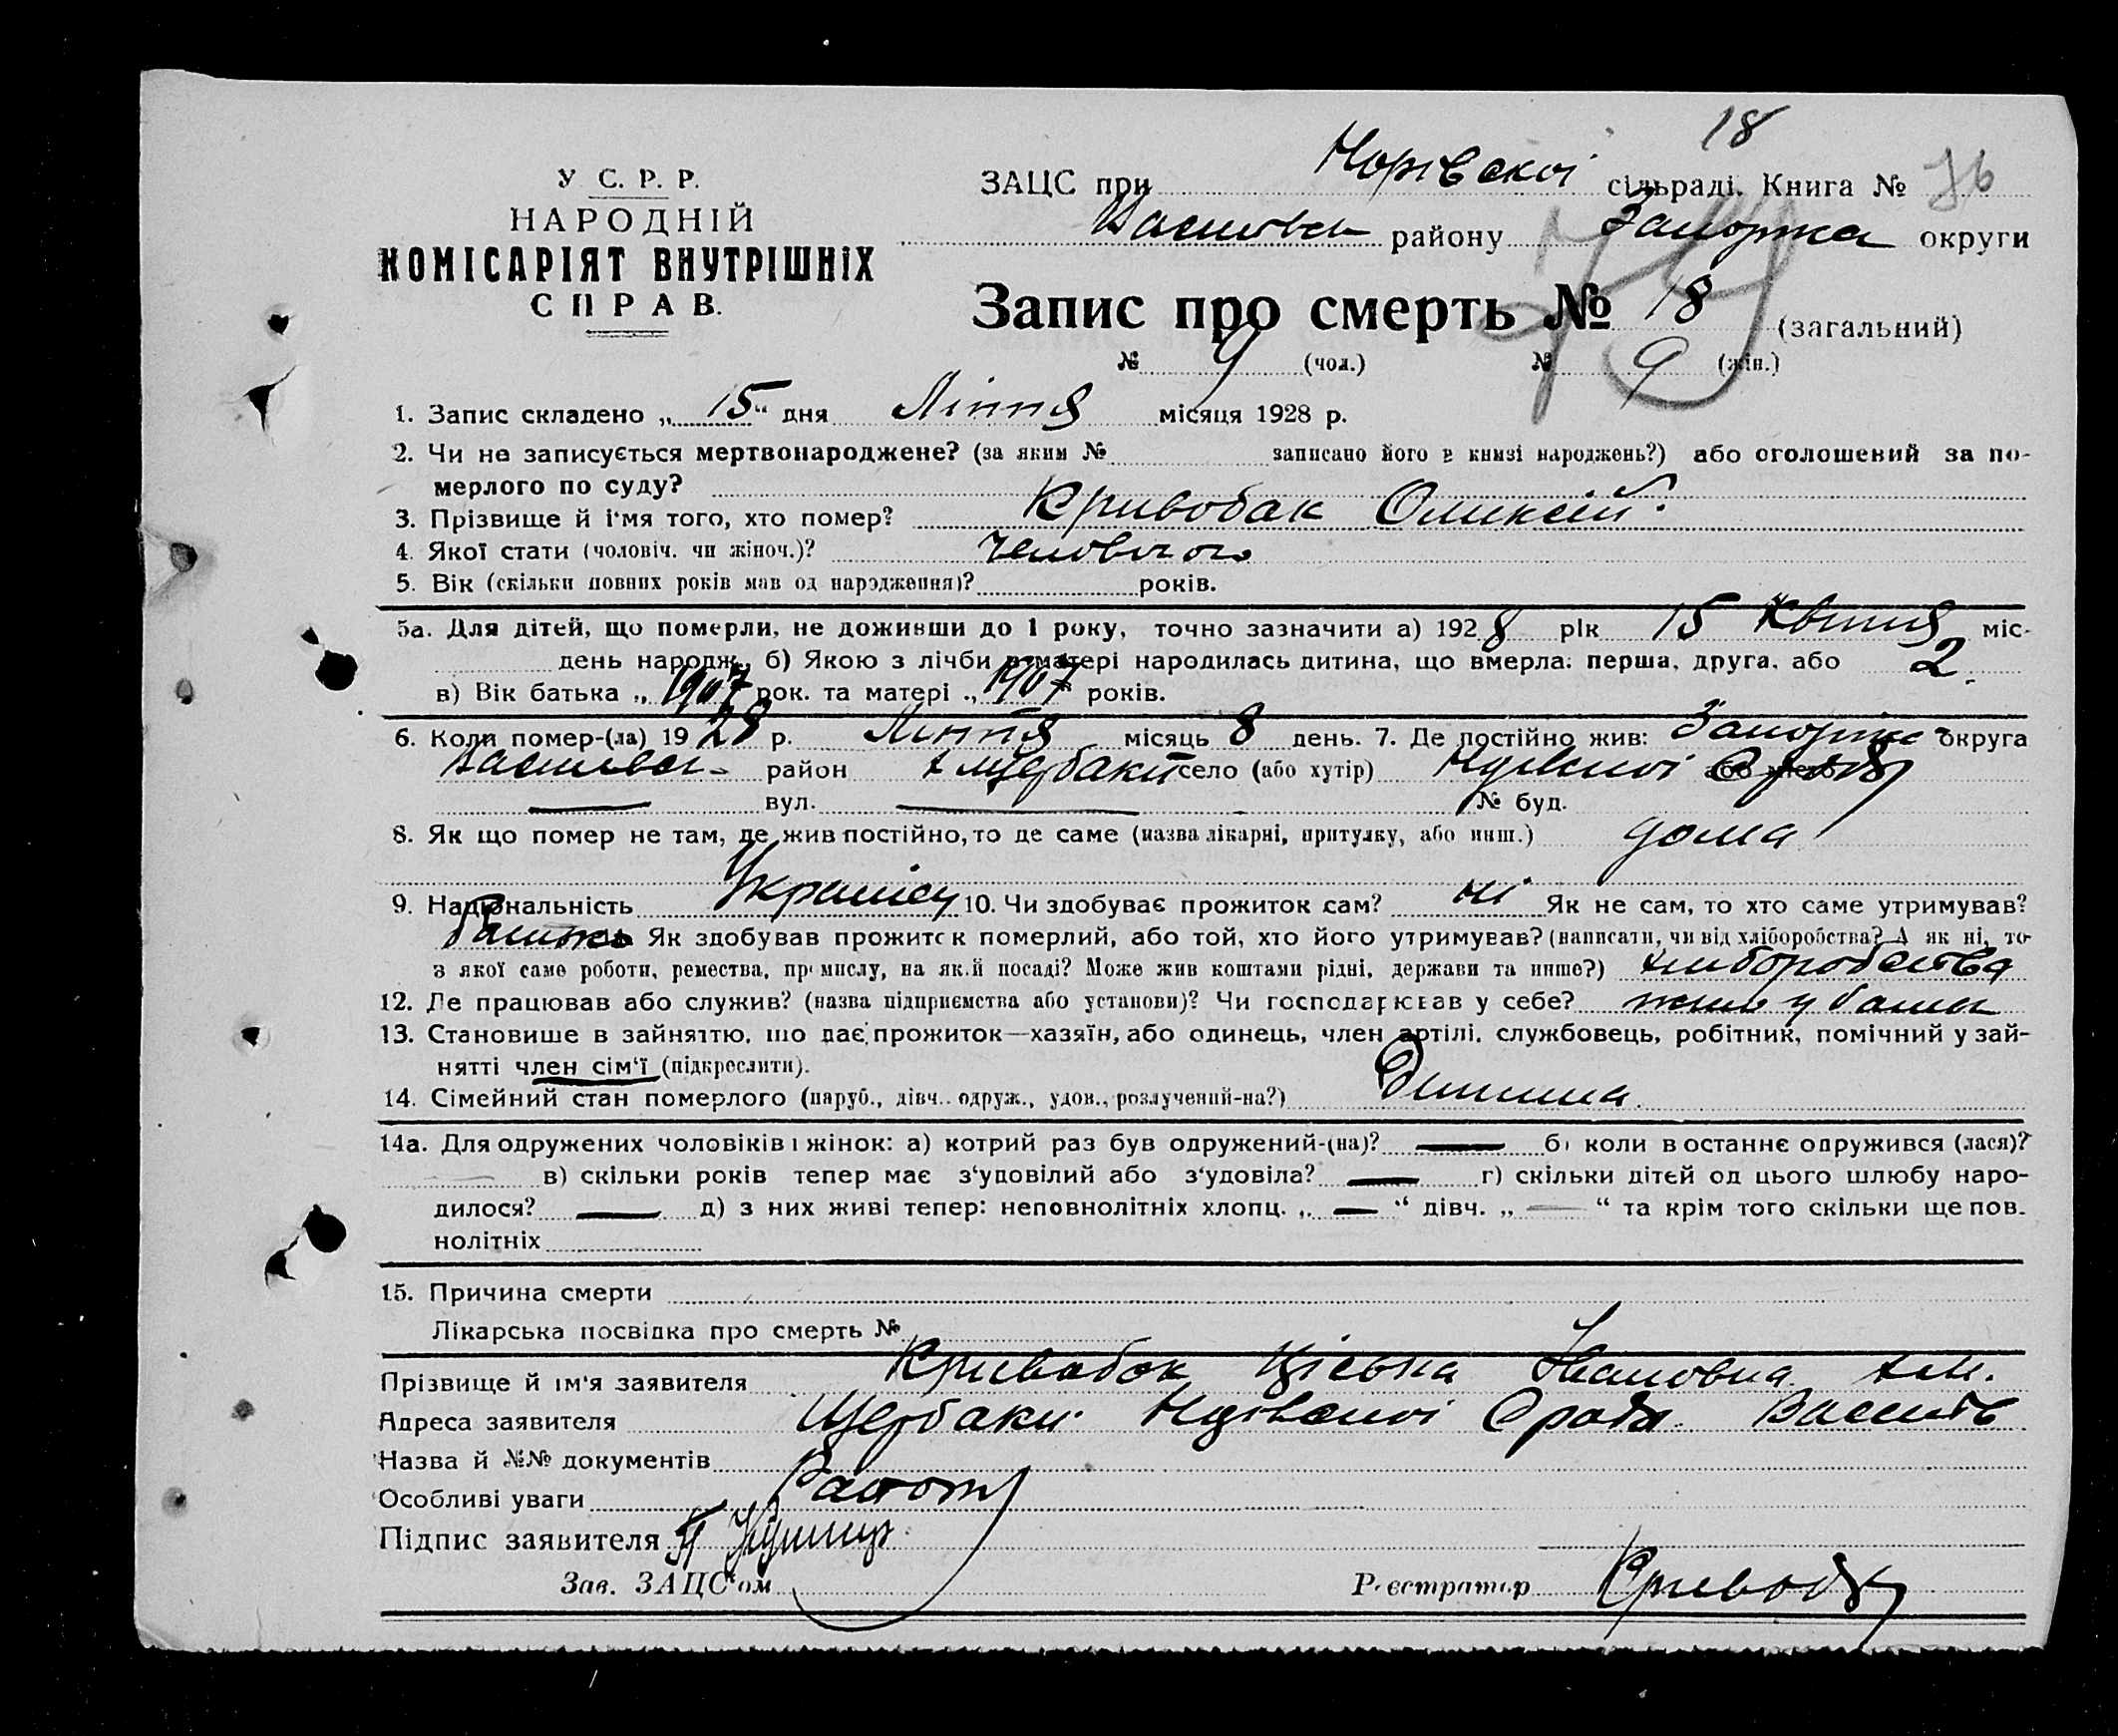 18
У С. Р. Р.
НАРОДНІЙ
КОМІСАРІЯТ ВНУТРІШНІХ
СПРАВ.
ЗАЦС при сільраді. Книга №
району округи
Запис про смерть № 18 (загальний)
№ 9 (чол.) № 9 (жін.)
1. Запис складено „ 15 “ дня Ліппя місяця 1928 р.
2. Чи не записується мертвонароджене? (за яким № записано його в книзі народжень?) або оголошений за по-
мерлого по суду?
3. Прізвище й і'мя того, хто помер? Кривобак Оликсій.
4. Якої стати (чоловіч. чи жіноч.)?
5. Вік (скільки повних років мав од народження)? років.
5а. Для дітей, що померли, не доживши до 1 року, точно зазначити а) 1928 рік 15 Квітня міс-
день народж., б) Якою з лічби в матері народилась дитина, що вмерла: перша, друга, або 2.
в) Вік батька „ 1907 рок. та матері „ 1907 років.
6. Коли помер-(ла) 1928 р. Ліппя місяць 8 день. 7. Де постійно жив: округа
район х Щербаки село (або хутір)
вул. № буд.
8. Як що помер не там, де жив постійно, то де саме (назва лікарні, притулку, або инш.) дома
9. Національність Украінец 10. Чи здобуває прожиток сам? ні Як не сам, то хто саме утримував?
Як здобував прожиток померлий, або той, хто його утримував? (написати, чи від хліборобства? А як ні, то
з якої саме роботи, ремества, промислу, на якій посаді? Може жив коштами рідні, держави та инше?) хлиборобства
12. Де працював або служив? (назва підприємства або установи)? Чи господарював у себе? жив у
13. Становище в зайняттю, що дає прожиток—хазяїн, або одинець, член артілі, службовець, робітник, помічний у зай-
нятті член сім'ї (підкреслити).
14. Сімейний стан померлого (паруб., дівч., одруж., удов., розлучений-на?) Дитина.
14а. Для одружених чоловіків і жінок: а) котрий раз був одружений-(на)? б) коли востаннє одружився (лася)?
в) скільки років тепер має з'удовілий або з'удовіла? г) скільки дітей од цього шлюбу наро-
дилося? д) з них живі тепер: неповнолітніх хлопц. „ — “ дівч. „ — “ та крім того скільки ще пов-
нолітніх
15. Причина смерти
Лікарська посвідка про смерть №
Прізвище й ім'я заявителя Кривобок Ивановна
Адреса заявителя Щербаки
Назва й №№ документів
Особливі уваги
Підпис заявителя
Зав. ЗАЦС'ом Реєстратор